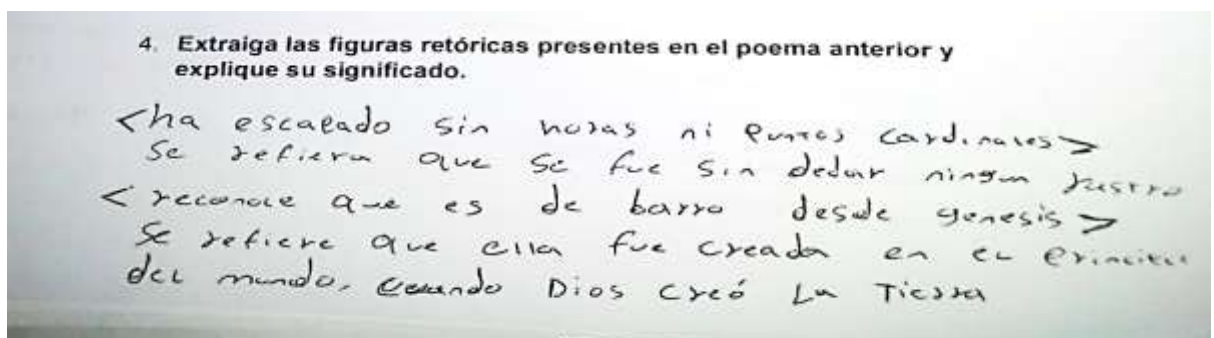 4. Extraiga las figuras retóricas presentes en el poema anterior y
explique su significado.
<ha escapado sin horas ni puntos cardinales>
Se refiera que se fue sin dedar ningun rastro
<reconoce que es de barro desde genesis>
Se refiere que ella fue creada en el principio
del mundo, cuando Dios creó La Tierra